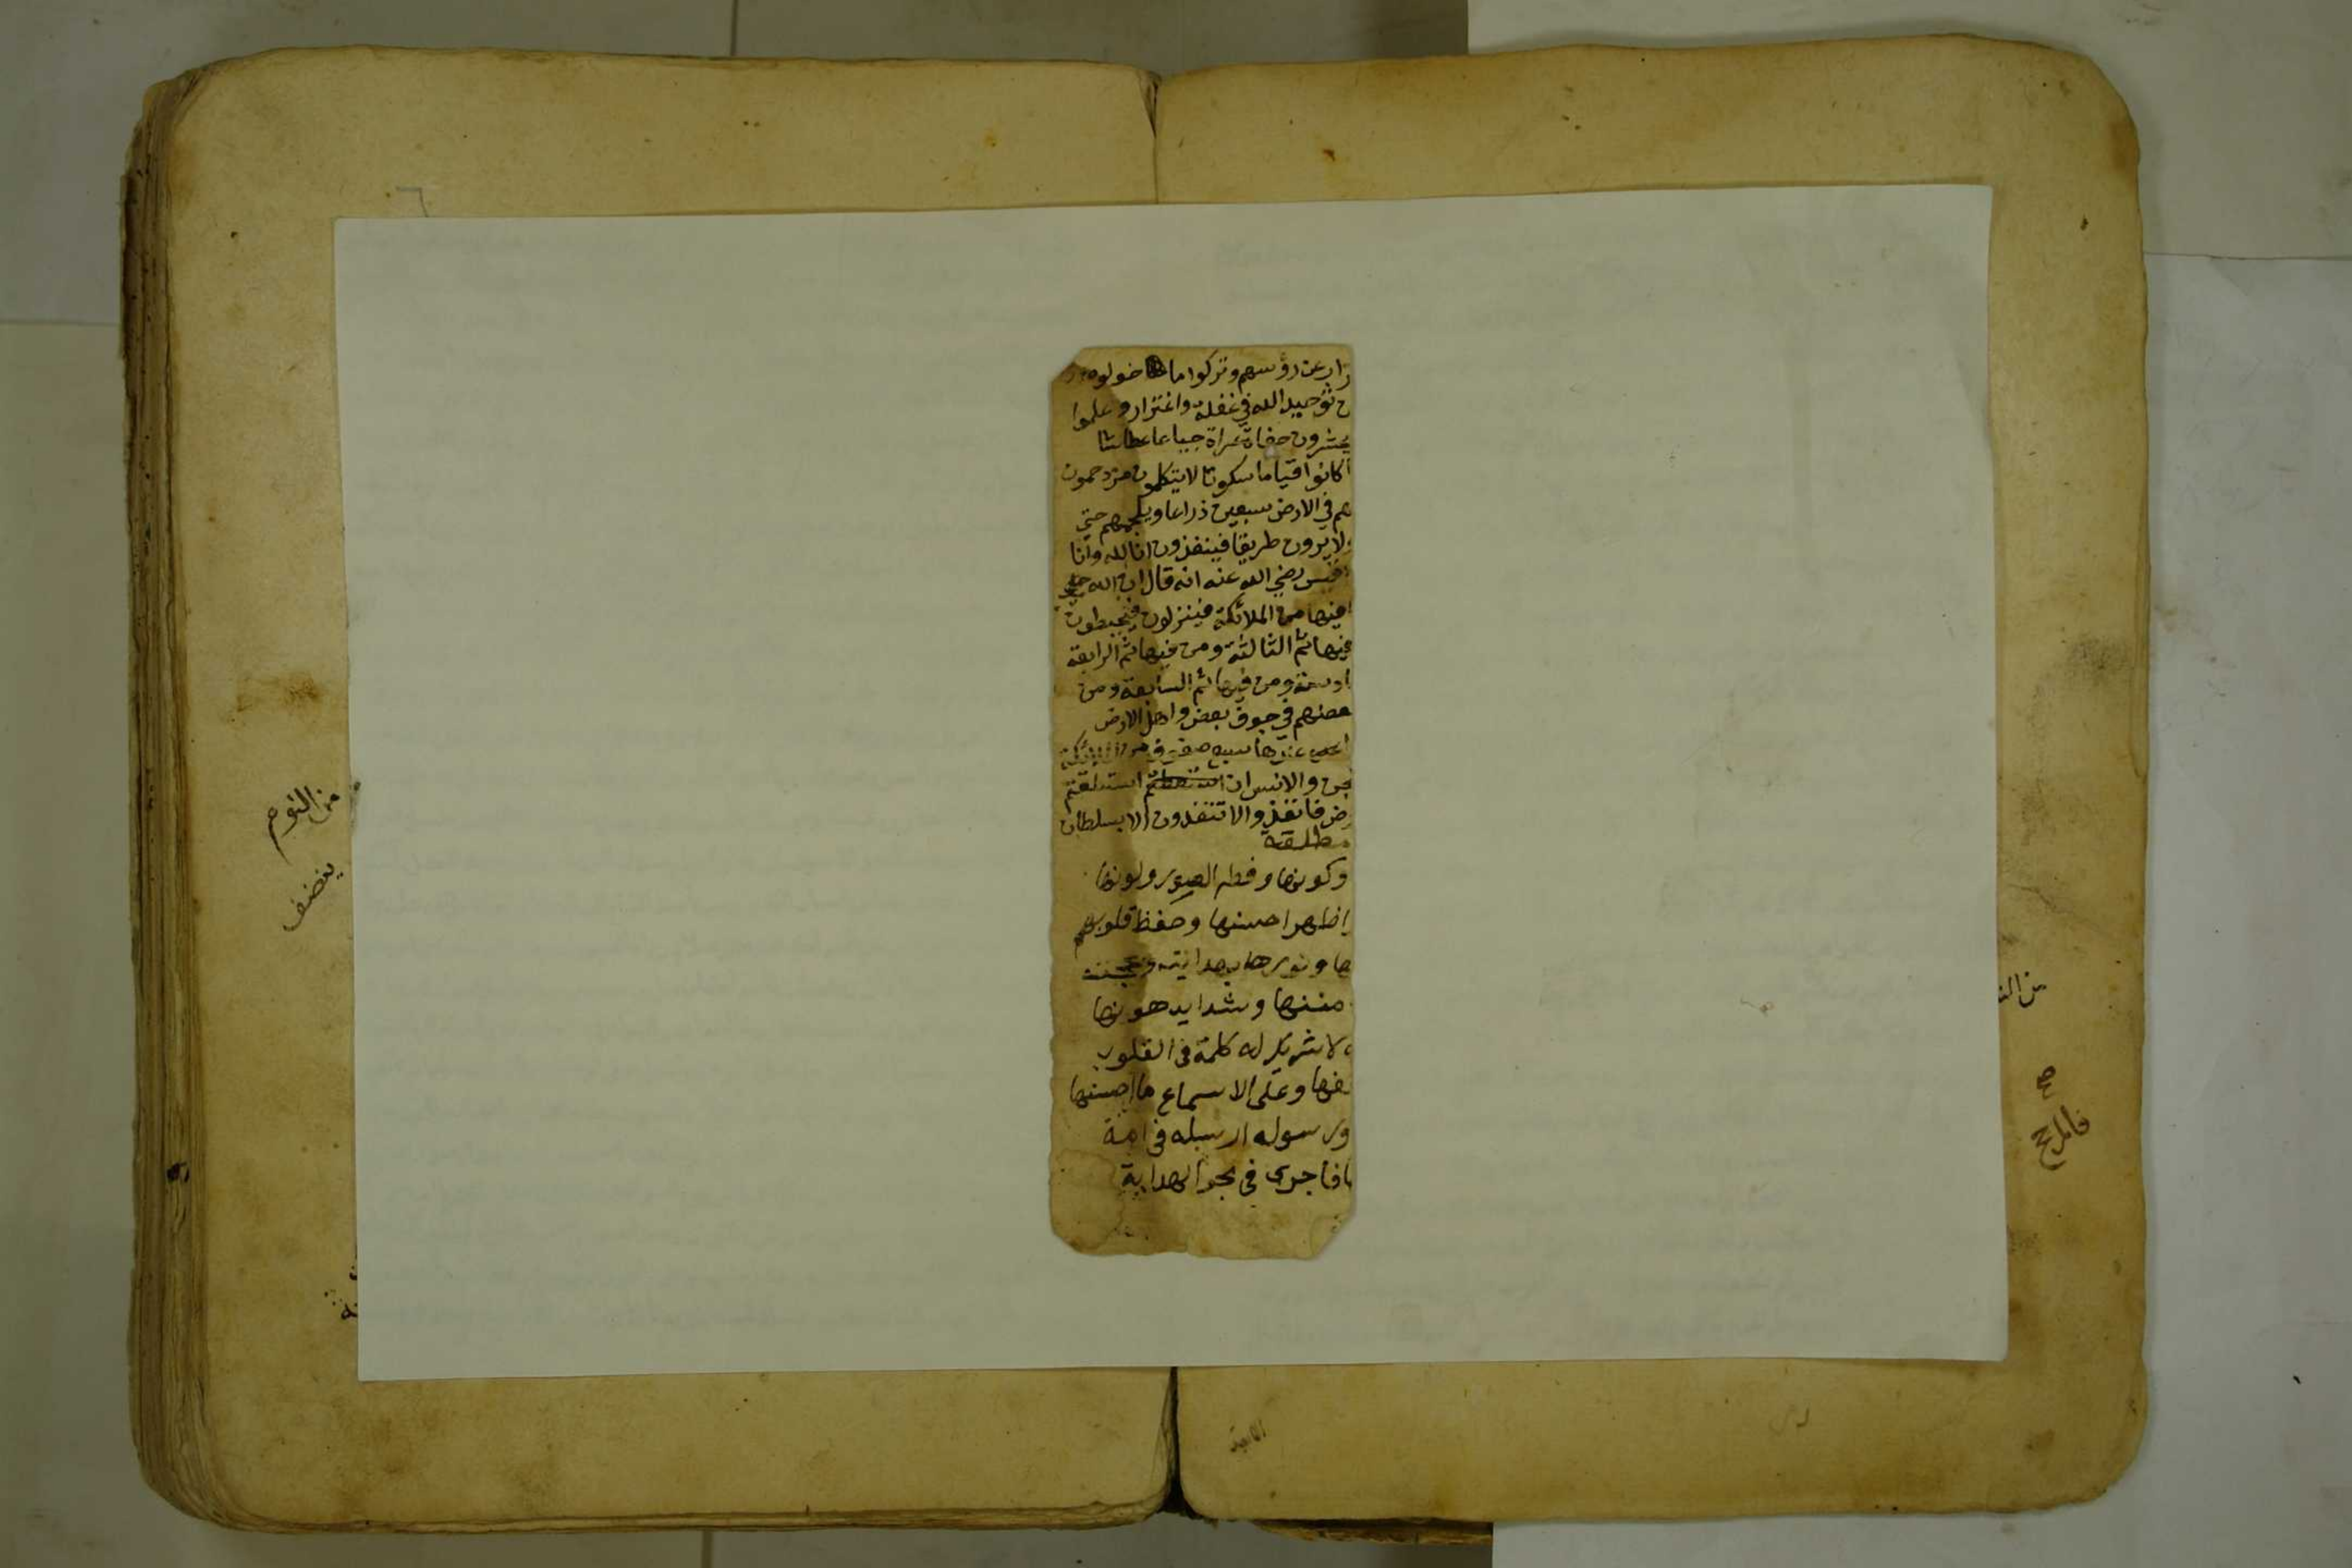 زار عن رؤسهم وتركوا ما خولوه
ح توحيد الله في غفلة واغترار وعلموا
يحشرون حفاة عراة جياعا عطاشا
ا كانوا قياما سكوتا لا يتكلمون مزدحمون
هم في الارض سبعين ذراعا ويلجمهم حتي
ولا يرون طريقا فينفذون انا لله وانا
قيس رضي الله عنه انه قال ان الله
فيها من الملائكة فينزلون فيحيطون
فيها ثم الثالثة ومن فيها ثم الرابعة
ادسة ومن فيها ثم السابعة ومن
بعضهم في جوف بعض واهل الارض
سبع صفوف من الملائكة
لجن والانس ان استطعتم
رض فانفذوا لا تنفذون الا بسلطان
مطلقة
وكونها وفطر الصور ولونها
اظهر احسنها وحفظ قلوبهم
ها ونورها بهدايته
مننها وشدايد هونها
لا شريك له كلمة في القلوب
وعلى الاسماع ما احسنها
ورسوله ارسله في امة
فاجرى في بحر الهداية
من النوم
ينصف
من الن
صح